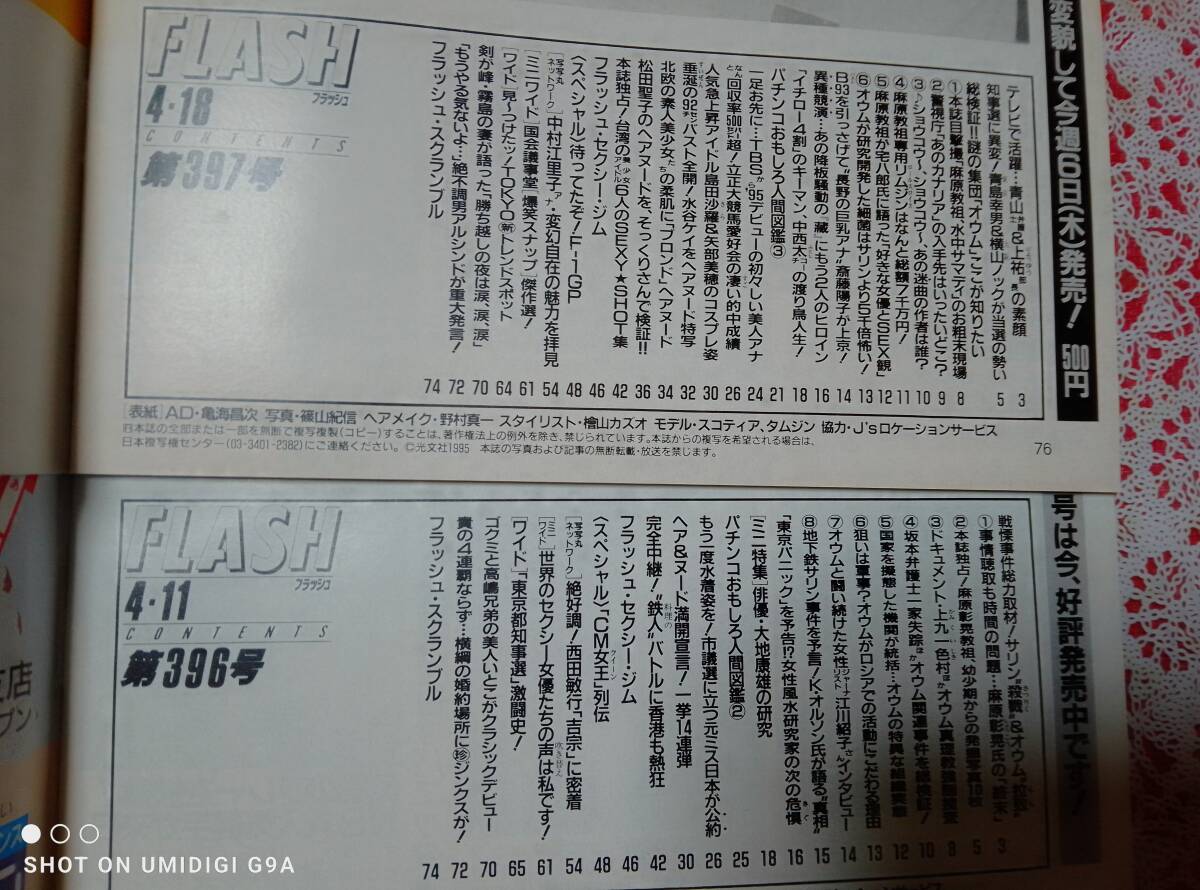 変貌して今週6日(木)発売! 500円
FLASH
フラッシュ
4・18
CONTENTS
第397号
テレビで活躍…青山弁護士&上祐部長の素顔 3
知事選に異変!青島幸男&横山ノックが当選の勢い 5
総検証!!謎の集団「オウム」ここが知りたい
①本誌目撃撮「麻原教祖、水中サマディ」のお粗末現場 8
②警視庁「あのカナリア」の入手先はいったいどこ? 9
③♪ショウコウ〜、ショウコウ〜、あの迷曲の作者は誰? 10
④麻原教祖専用リムジンはなんと総額7千万円! 11
⑤麻原教祖が宅八郎氏に語った“好きな女優とSEX観” 12
⑥オウムが研究開発した細菌はサリンより5千倍怖い! 13
B・93を引っさげて“長野の巨乳アナ”斎藤陽子が上京! 14
異種競演…あの降板騒動の「藏」にもう2人のヒロイン 16
「イチロー4割」のキーマン、中西太コーチの渡り鳥人生! 18
パチンコおもしろ人間図鑑③ 21
一足お先に…TBSから'95デビューの初々しい美人アナ 24
なんと回収率500㌫超!立正大競馬愛好会の凄い的中成績 26
人気急上昇アイドル島田沙羅&矢部美穂のコスプレ姿 30
垂涎の92㌢バスト全開!水谷ケイをヘアヌード特写 32
北欧の素人美少女たちの柔肌に「ブロンド」ヘアヌード 34
松田聖子のヘアヌードを、そっくりさんで検証!! 36
本誌独占!台湾の美少女アイドル6人のSEXY★SHOT集 42
フラッシュ・セクシー・ジム 46
〈スペシャル〉待ってたぞ!F-1GP 48
[写写丸ネットワーク]「中村江里子」“変幻自在の魅力を拝見 54
[ミニワイド]国会議事堂[爆笑スナップ]傑作選! 61
[ワイド]見〜つけたッ!TOKYO㊟トレンドスポット 64
剣が峰・霧島の妻が語った“勝ち越しの夜は涙、涙、涙” 70
「もうやる気ないよ…」絶不調男アルシンドが重大発言! 72
フラッシュ・スクランブル 74
[表紙]AD・亀海昌次 写真・篠山紀信 ヘアメイク・野村真一 スタイリスト・檜山カズオ モデル・スコティア、タムジン 協力・J'sロケーションサービス
Ⓡ本誌の全部または一部を無断で複写複製(コピー)することは、著作権法上の例外を除き、禁じられています。本誌からの複写を希望される場合は、
日本複写権センター(03-3401-2382)にご連絡ください。©光文社1995 本誌の写真および記事の無断転載・放送を禁じます。
76
号は今、好評発売中です!
FLASH
フラッシュ
4・11
CONTENTS
第396号
戦慄事件総力取材!サリン“殺戮”&オウム“拉致”
①事情聴取も時間の問題…麻原彰晃氏の「終末」 3
②本誌独占!麻原彰晃教祖、幼少期からの発掘写真10枚 5
③ドキュメント上九一色村ほかオウム真理教強制捜査 8
④坂本弁護士一家失踪ほかオウム関連事件を総検証! 10
⑤国家を擬態した機関が統括…オウムの特異な組織実態 12
⑥狙いは軍事?オウムがロシアでの活動にこだわる理由 13
⑦オウムと闘い続けた女性ジャーナリスト江川紹子さんインタビュー 14
⑧地下鉄サリン事件を予言!K・オルソン氏が語る“真相” 15
「東京パニック」を予告!?女性風水研究家の次の危惧 16
[ミニ特集]「俳優・大地康雄の研究 18
パチンコおもしろ人間図鑑② 25
もう一度水着姿を!市議選に立つ元ミス日本が公約 26
ヘア&ヌード満開宣言!一挙14連弾 30
完全中継!“料理の鉄人”バトルに香港も熱狂 42
フラッシュ・セクシー・ジム 46
〈スペシャル〉「CM女王」列伝 48
[写写丸ネットワーク]絶好調!西田敏行「吉宗」に密着 54
[ミニワイド]世界のセクシー女優たちの声は私です! 61
[ワイド]「東京都知事選」激闘史! 65
ゴクミと高嶋兄弟の美人いとこがクラシックデビュー 70
貴の4連覇ならず…横綱の婚約場所に㊩ジンクスが! 72
フラッシュ・スクランブル 74
SHOT ON UMIDIGI G9A